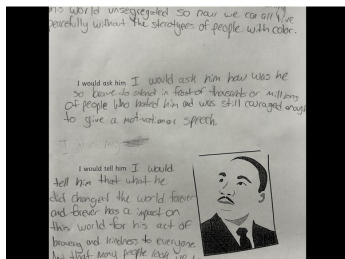 his world unsegregated so now we can all live
peacefully without the sterotypes of people with color.
I would ask him I would ask him how was he
so brave to stand in front of thousands or millions
of people who hated him and was still couraged enough
to give a motivational speech.
I would tell him I would
tell him that what he
did changed the world forever
and forever has a impact on
this world for his act of
bravery and kindness to everyone
that many people look up